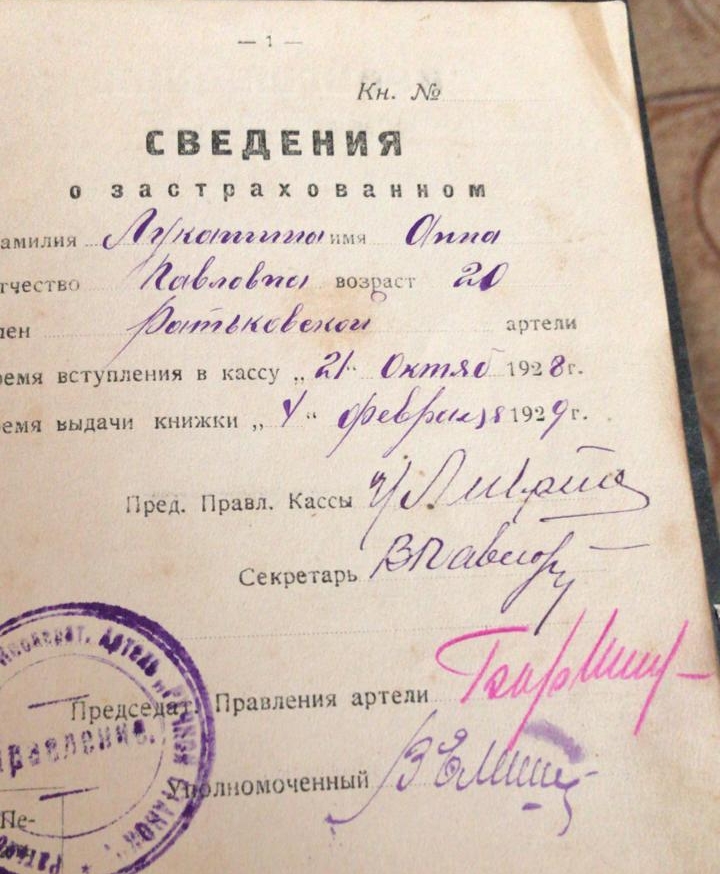 — 1 —
Кн. №
СВЕДЕНИЯ
о застрахованном
амилия Лукашина имя Анна
тчество Павловна возраст 20
лен Ратьковской артели
ремя вступления в кассу „21“ Октяб 1928г.
емя выдачи книжки „ “ февраля 1929г.
Пред. Правл. Кассы
Секретарь ВПавлов
Председат. Правления артели
Уполномоченный
Артель „Ручной Станок“
правление.
Пе-